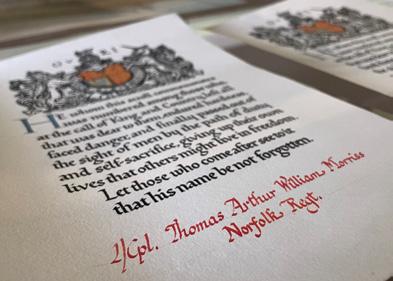 HE whom this scroll commemorates
was numbered among those who,
at the call of King and Country, left all
that was dear to them, endured hardness,
faced danger, and finally passed out of
the sight of men by the path of duty
and self-sacrifice, giving up their own
lives that others might live in freedom.
Let those who come after see to it
that his name be not forgotten.
L/Cpl. Thomas Arthur William Morriss
Norfolk Regt.